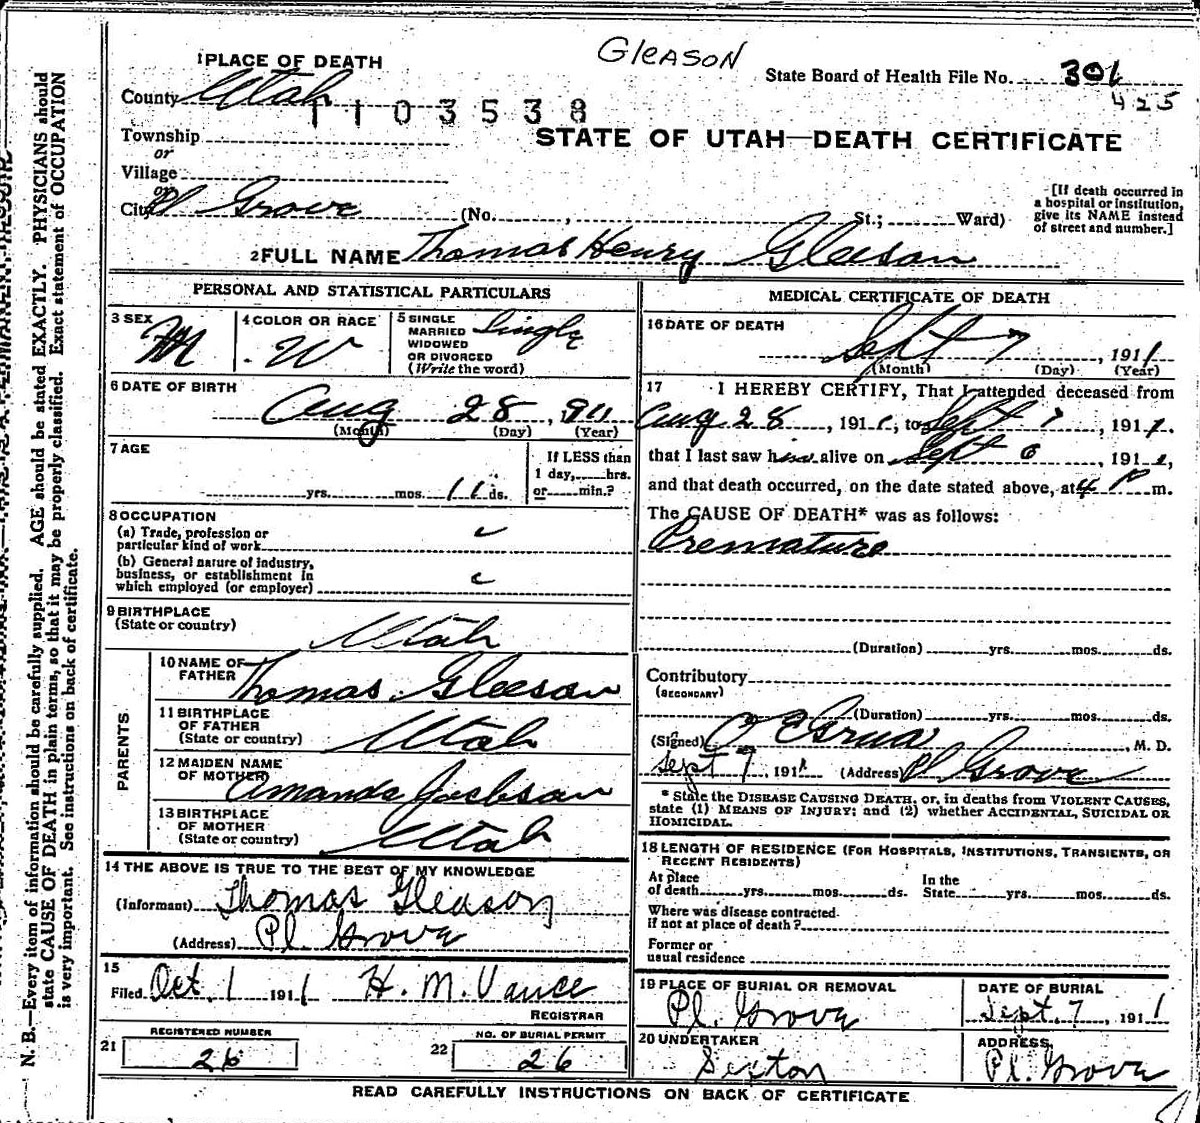 GLEASON
1 PLACE OF DEATH
State Board of Health File No. 301
425
County Utah
1103538
Township
STATE OF UTAH—DEATH CERTIFICATE
or
Village
or
City Pl Grove (No. , St.; Ward)
[If death occurred in a hospital or institution, give its NAME instead of street and number.]
2 FULL NAME Thomas Henry Gleeson
PERSONAL AND STATISTICAL PARTICULARS
3 SEX M
4 COLOR OR RACE W
5 SINGLE MARRIED WIDOWED OR DIVORCED (Write the word) Single
6 DATE OF BIRTH
Aug 28, 911
(Month) (Day) (Year)
7 AGE
yrs. mos. 11 ds.
If LESS than 1 day, hrs. or min.?
8 OCCUPATION
(a) Trade, profession or particular kind of work
(b) General nature of industry, business, or establishment in which employed (or employer)
9 BIRTHPLACE
(State or country) Utah
PARENTS
10 NAME OF FATHER Thomas Gleeson
11 BIRTHPLACE OF FATHER (State or country) Utah
12 MAIDEN NAME OF MOTHER Amanda
13 BIRTHPLACE OF MOTHER (State or country) Utah
14 THE ABOVE IS TRUE TO THE BEST OF MY KNOWLEDGE
(Informant) Thomas Gleason
(Address) Pl. Grove
15
Filed Oct. 1 1911 H. M. Vance
REGISTRAR
REGISTERED NUMBER
21 26
NO. OF BURIAL PERMIT
22 26
MEDICAL CERTIFICATE OF DEATH
16 DATE OF DEATH
Sept 7, 1911
(Month) (Day) (Year)
17 I HEREBY CERTIFY, That I attended deceased from
Aug 28, 1911, to Sept 7, 1911,
that I last saw him alive on Sept 6, 1911,
and that death occurred, on the date stated above, at 4 P m.
The CAUSE OF DEATH* was as follows:
Premature
(Duration) yrs. mos. ds.
Contributory
(SECONDARY)
(Duration) yrs. mos. ds.
(Signed) M. D.
Sept 7, 1911 (Address) Pl Grove
* State the DISEASE CAUSING DEATH, or, in deaths from VIOLENT CAUSES, state (1) MEANS OF INJURY; and (2) whether ACCIDENTAL, SUICIDAL OR HOMICIDAL.
18 LENGTH OF RESIDENCE (FOR HOSPITALS, INSTITUTIONS, TRANSIENTS, OR RECENT RESIDENTS)
At place of death yrs. mos. ds. In the State yrs. mos. ds.
Where was disease contracted if not at place of death?
Former or usual residence
19 PLACE OF BURIAL OR REMOVAL
Pl. Grove
DATE OF BURIAL
Sept. 7, 1911
20 UNDERTAKER
Sexton
ADDRESS
Pl. Grove
READ CAREFULLY INSTRUCTIONS ON BACK OF CERTIFICATE
N. B.—Every item of information should be carefully supplied. AGE should be stated EXACTLY. PHYSICIANS should
state CAUSE OF DEATH in plain terms, so that it may be properly classified. Exact statement of OCCUPATION
is very important. See instructions on back of certificate.